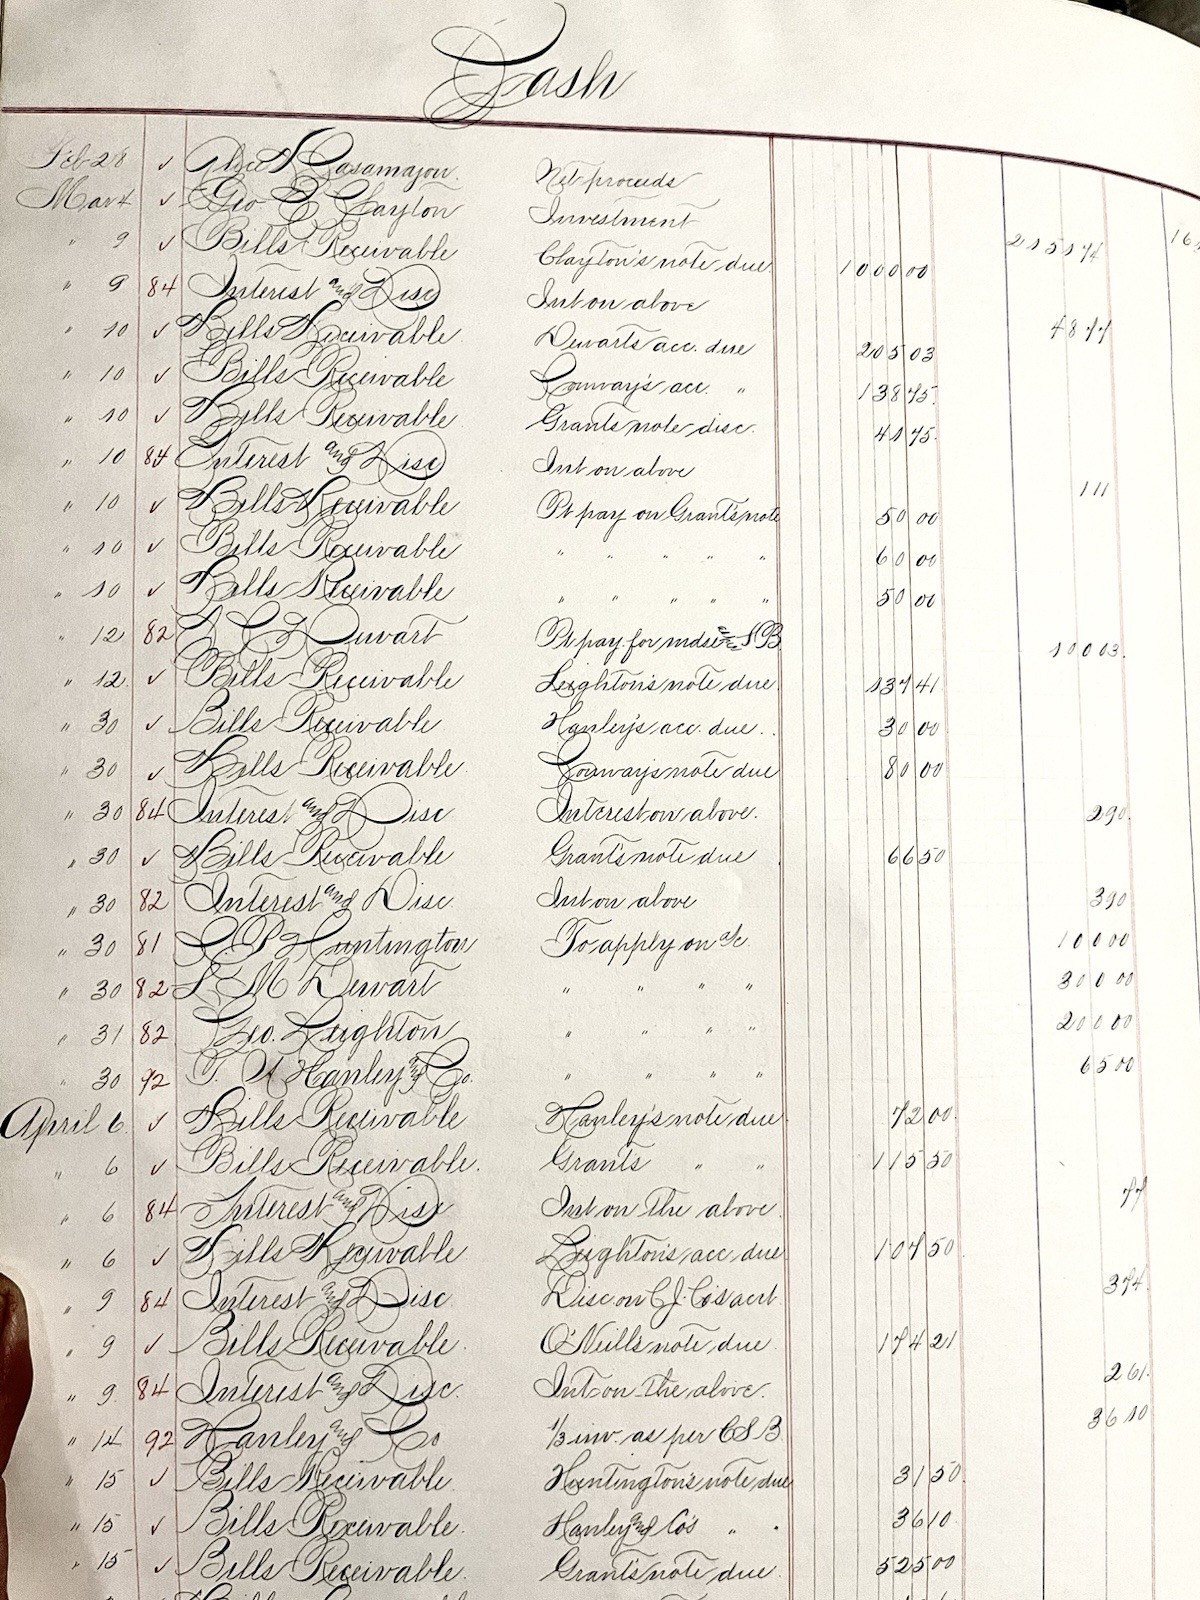 Cash
Feb 28 ✓ Alice S Casamajor. Net proceeds
Mar 4 ✓ Geo E Clayton Investment 2151 74 16
" 9 ✓ Bills Receivable Clayton's note due 1000 00
" 9 84 Interest and Disc Int on above 48 77
" 10 ✓ Bills Receivable Dewarts acc. due 205 03
" 10 ✓ Bills Receivable Conway's acc. " 138 75
" 10 ✓ Bills Receivable Grant's note disc. 41 75
" 10 84 Interest and Disc Int on above 1 11
" 10 ✓ Bills Receivable Pt pay on Grant's note 50 00
" 10 ✓ Bills Receivable " " " " " 60 00
" 10 ✓ Bills Receivable " " " " " 50 00
" 12 82 Dewart Pt pay for mdse S B 100 03
" 12 ✓ Bills Receivable Leighton's note due 137 41
" 30 ✓ Bills Receivable Hanley's acc. due 30 00
" 30 ✓ Bills Receivable Conway's note due 80 00
" 30 84 Interest and Disc Interest on above. 2 90
" 30 ✓ Bills Receivable Grant's note due 66 50
" 30 82 Interest and Disc Int on above 3 90
" 30 81 C. P. Huntington To apply on a/c 100 00
" 30 82 S M Dewart " " " " 300 00
" 31 82 Geo. Leighton " " " " 200 00
" 30 92 T. A Hanley and Co. " " " " 65 00
April 6 ✓ Bills Receivable Hanley's note due 72 00
" 6 ✓ Bills Receivable. Grants " " 115 50
" 6 84 Interest and Disc Int on the above 77
" 6 ✓ Bills Receivable Leighton's acc due 107 50
" 9 84 Interest and Disc Disc on C. J. Co's acct 3 74
" 9 ✓ Bills Receivable. O'Neills note due 174 21
" 9 84 Interest and Disc. Int on the above. 2 61
" 14 92 Hanley and Co 1/3 inv. as per C S B 36 10
" 15 ✓ Bills Receivable Huntington's note due 31 50
" 15 ✓ Bills Receivable. Hanley and Co's " " 36 10
" 15 ✓ Bills Receivable Grant's note due 525 00